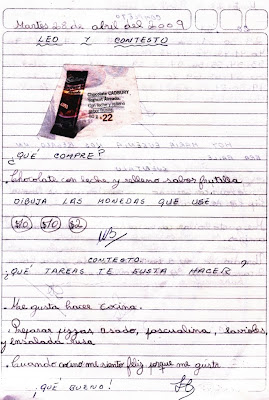 Martes 28 de abril del 2009
LEO Y CONTESTO
Chocolate CADBURY
Yoghurt Amada.
Con leche y relleno
$22
¿QUÉ COMPRE?
. Chocolate con leche y relleno sabor frutilla
DIBUJA LAS MONEDAS QUE USÉ
$10 $10 $2
CONTESTO
¿QUÉ TAREAS TE GUSTA HACER?
. Me gusta hacer cocina.
. Preparar pizzas asado, pascualina, ravioles,
y ensalada rusa
. Cuando cocino me siento feliz porque me gusta
¡QUÉ BUENO!